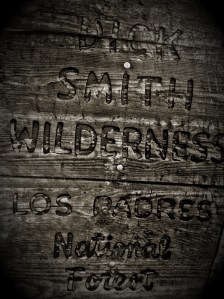 DICK
SMITH
WILDERNESS
LOS PADRES
National
Forest